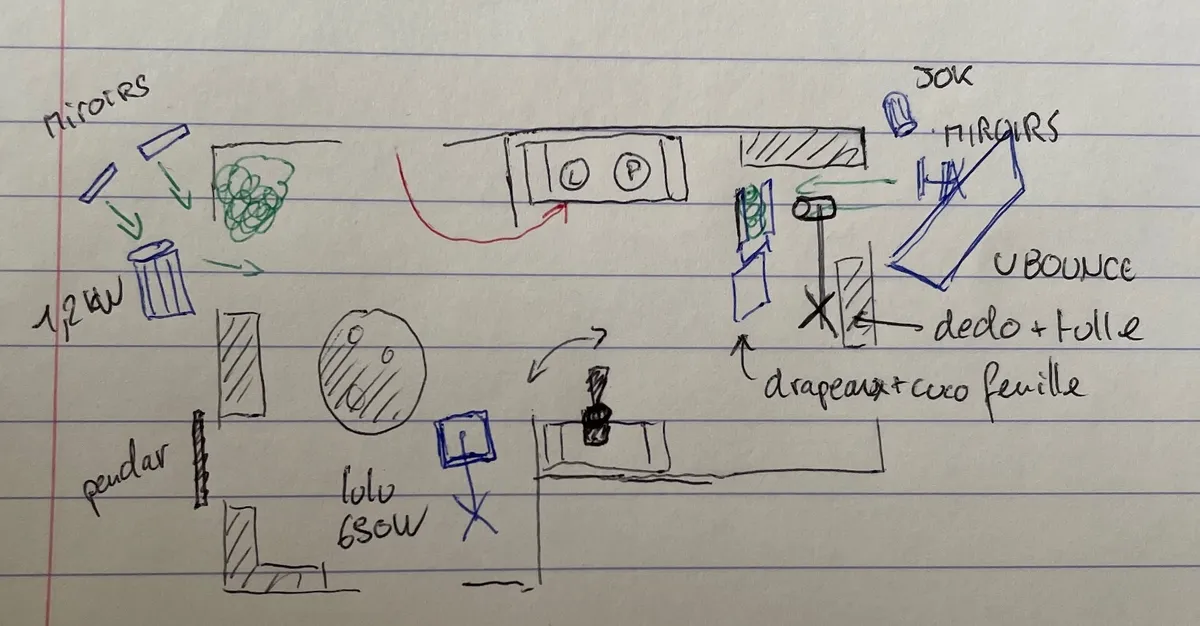 MIROIRS
JOK
MIROIRS
L P
1,2 KW
U BOUNCE
dedo + tulle
drapeaux + cuco feuille
pendar
lolo
650W